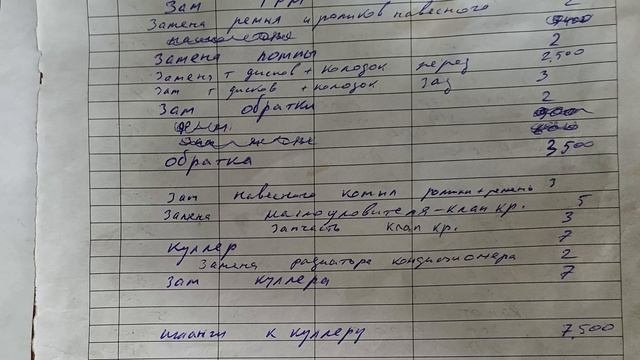 Зам ГРМ 2
Замена ремня и роликов навесного
Замена помпы 2
Замена т дисков + колодок перед 2.500
Зам т дисков + колодок зад 3
Зам обратки 2
обратка 3500
Зам навесного компл ролики + ремень 3
Замена маслоуловителя-клап кр. 5
Запчасть клап кр. 3
Куллер 7
Замена радиатора кондизионера 2
Зам куллера 7
шланги к куллеру 7,500